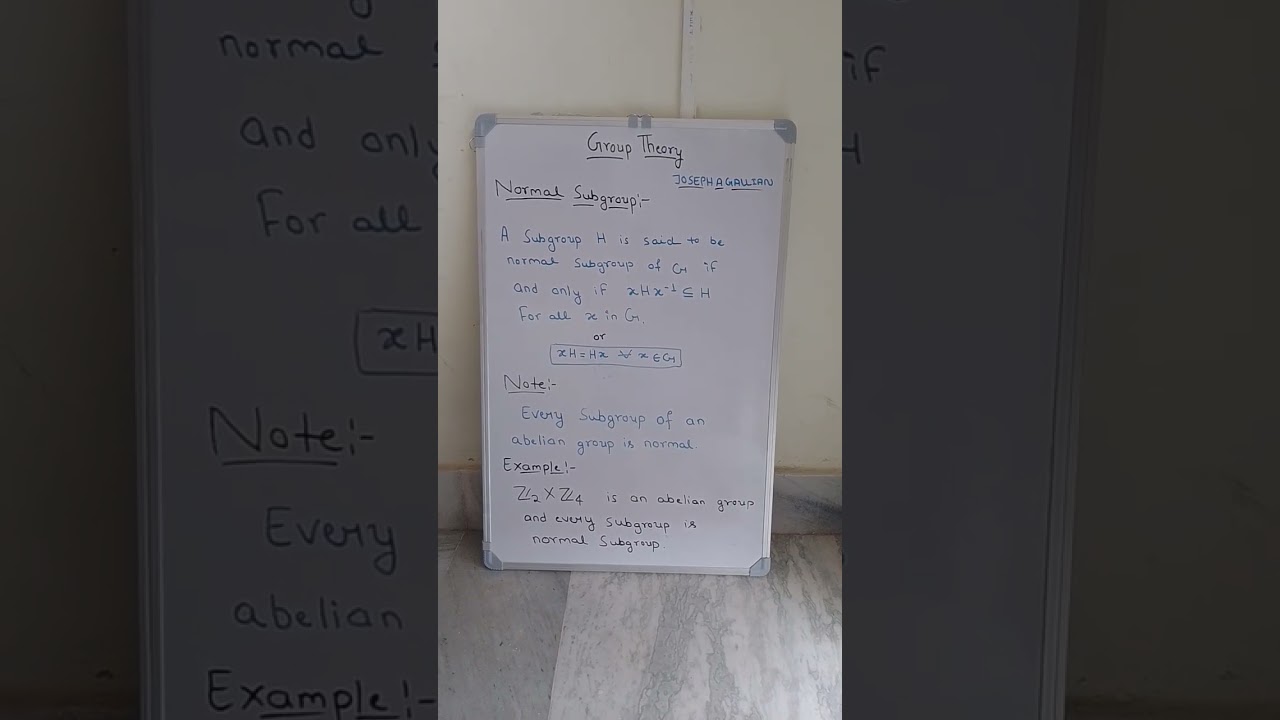 Group Theory
JOSEPH A GALLIAN
Normal Subgroup:-
A Subgroup H is said to be
normal subgroup of G if
and only if xHx⁻¹ ⊆ H
For all x in G.
or
xH = Hx ∀ x ∈ G
Note:-
Every Subgroup of an
abelian group is normal.
Example:-
ℤ₂ × ℤ₄ is an abelian group
and every subgroup is
normal Subgroup.